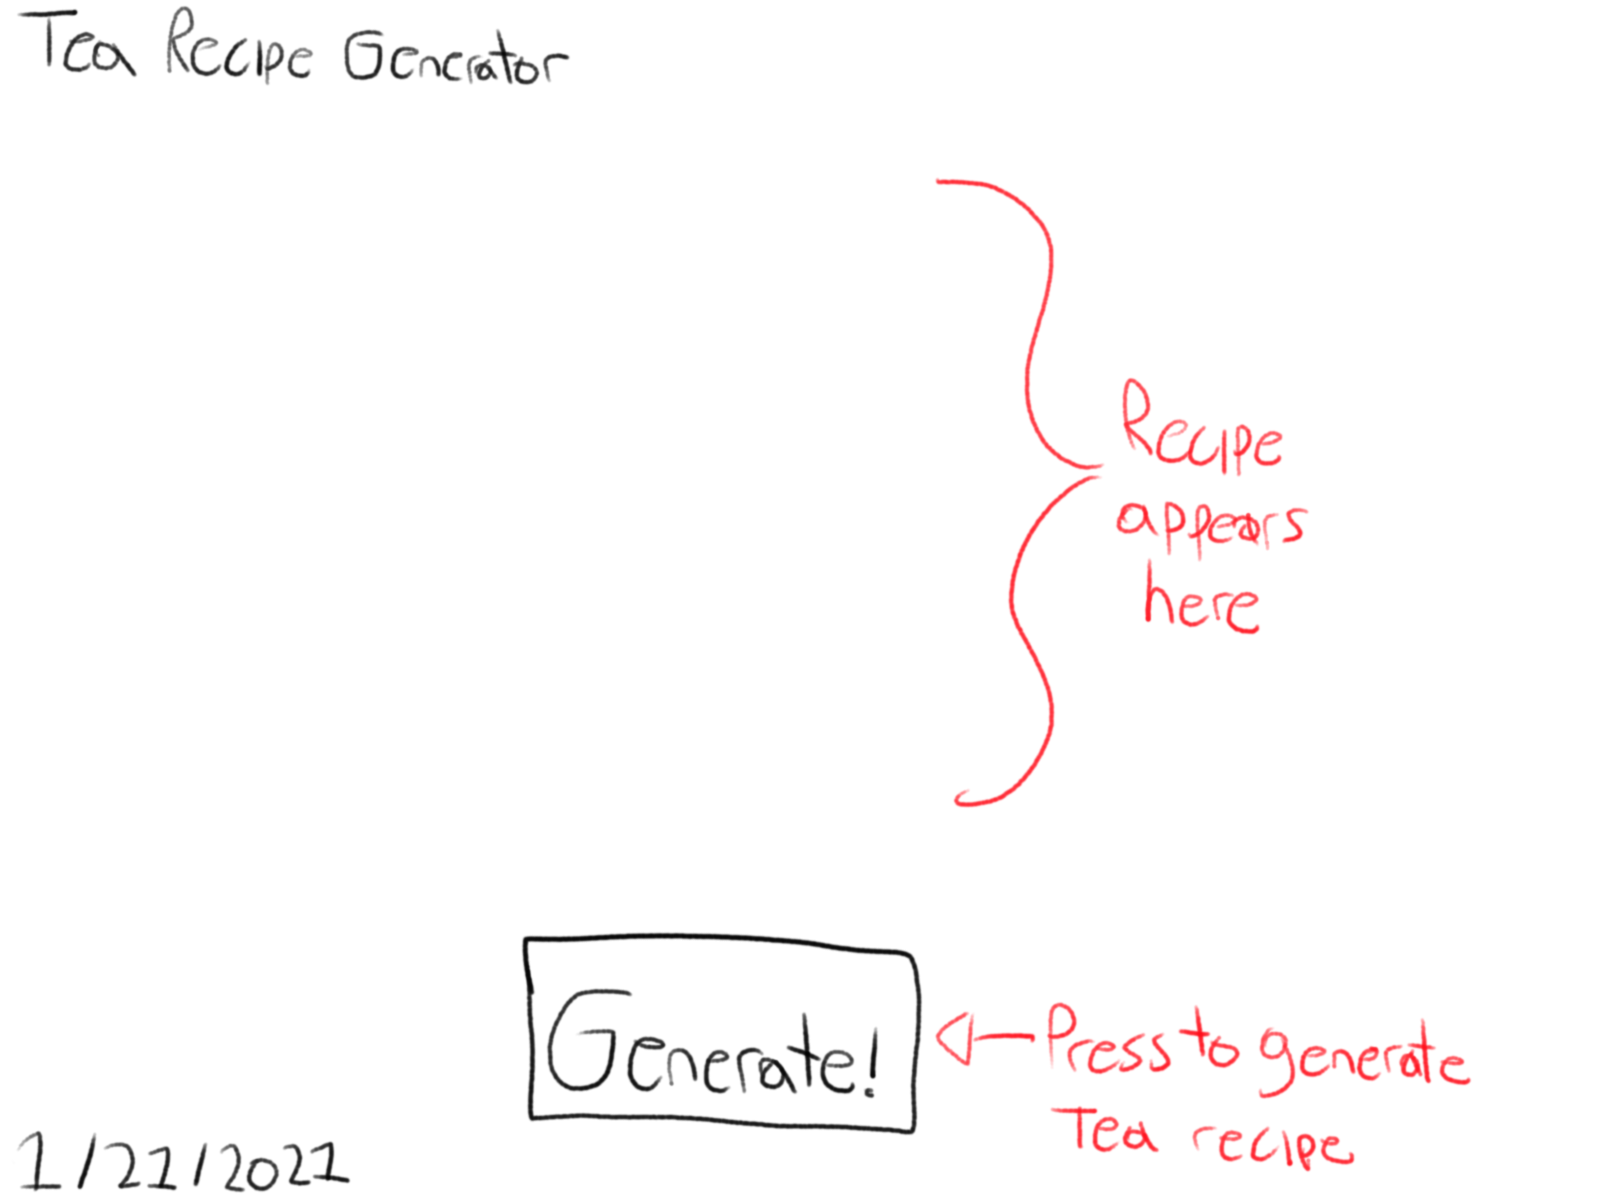 Tea Recipe Generator
Recipe
appears
here
Generate!
Press to generate
Tea recipe
1/21/2021